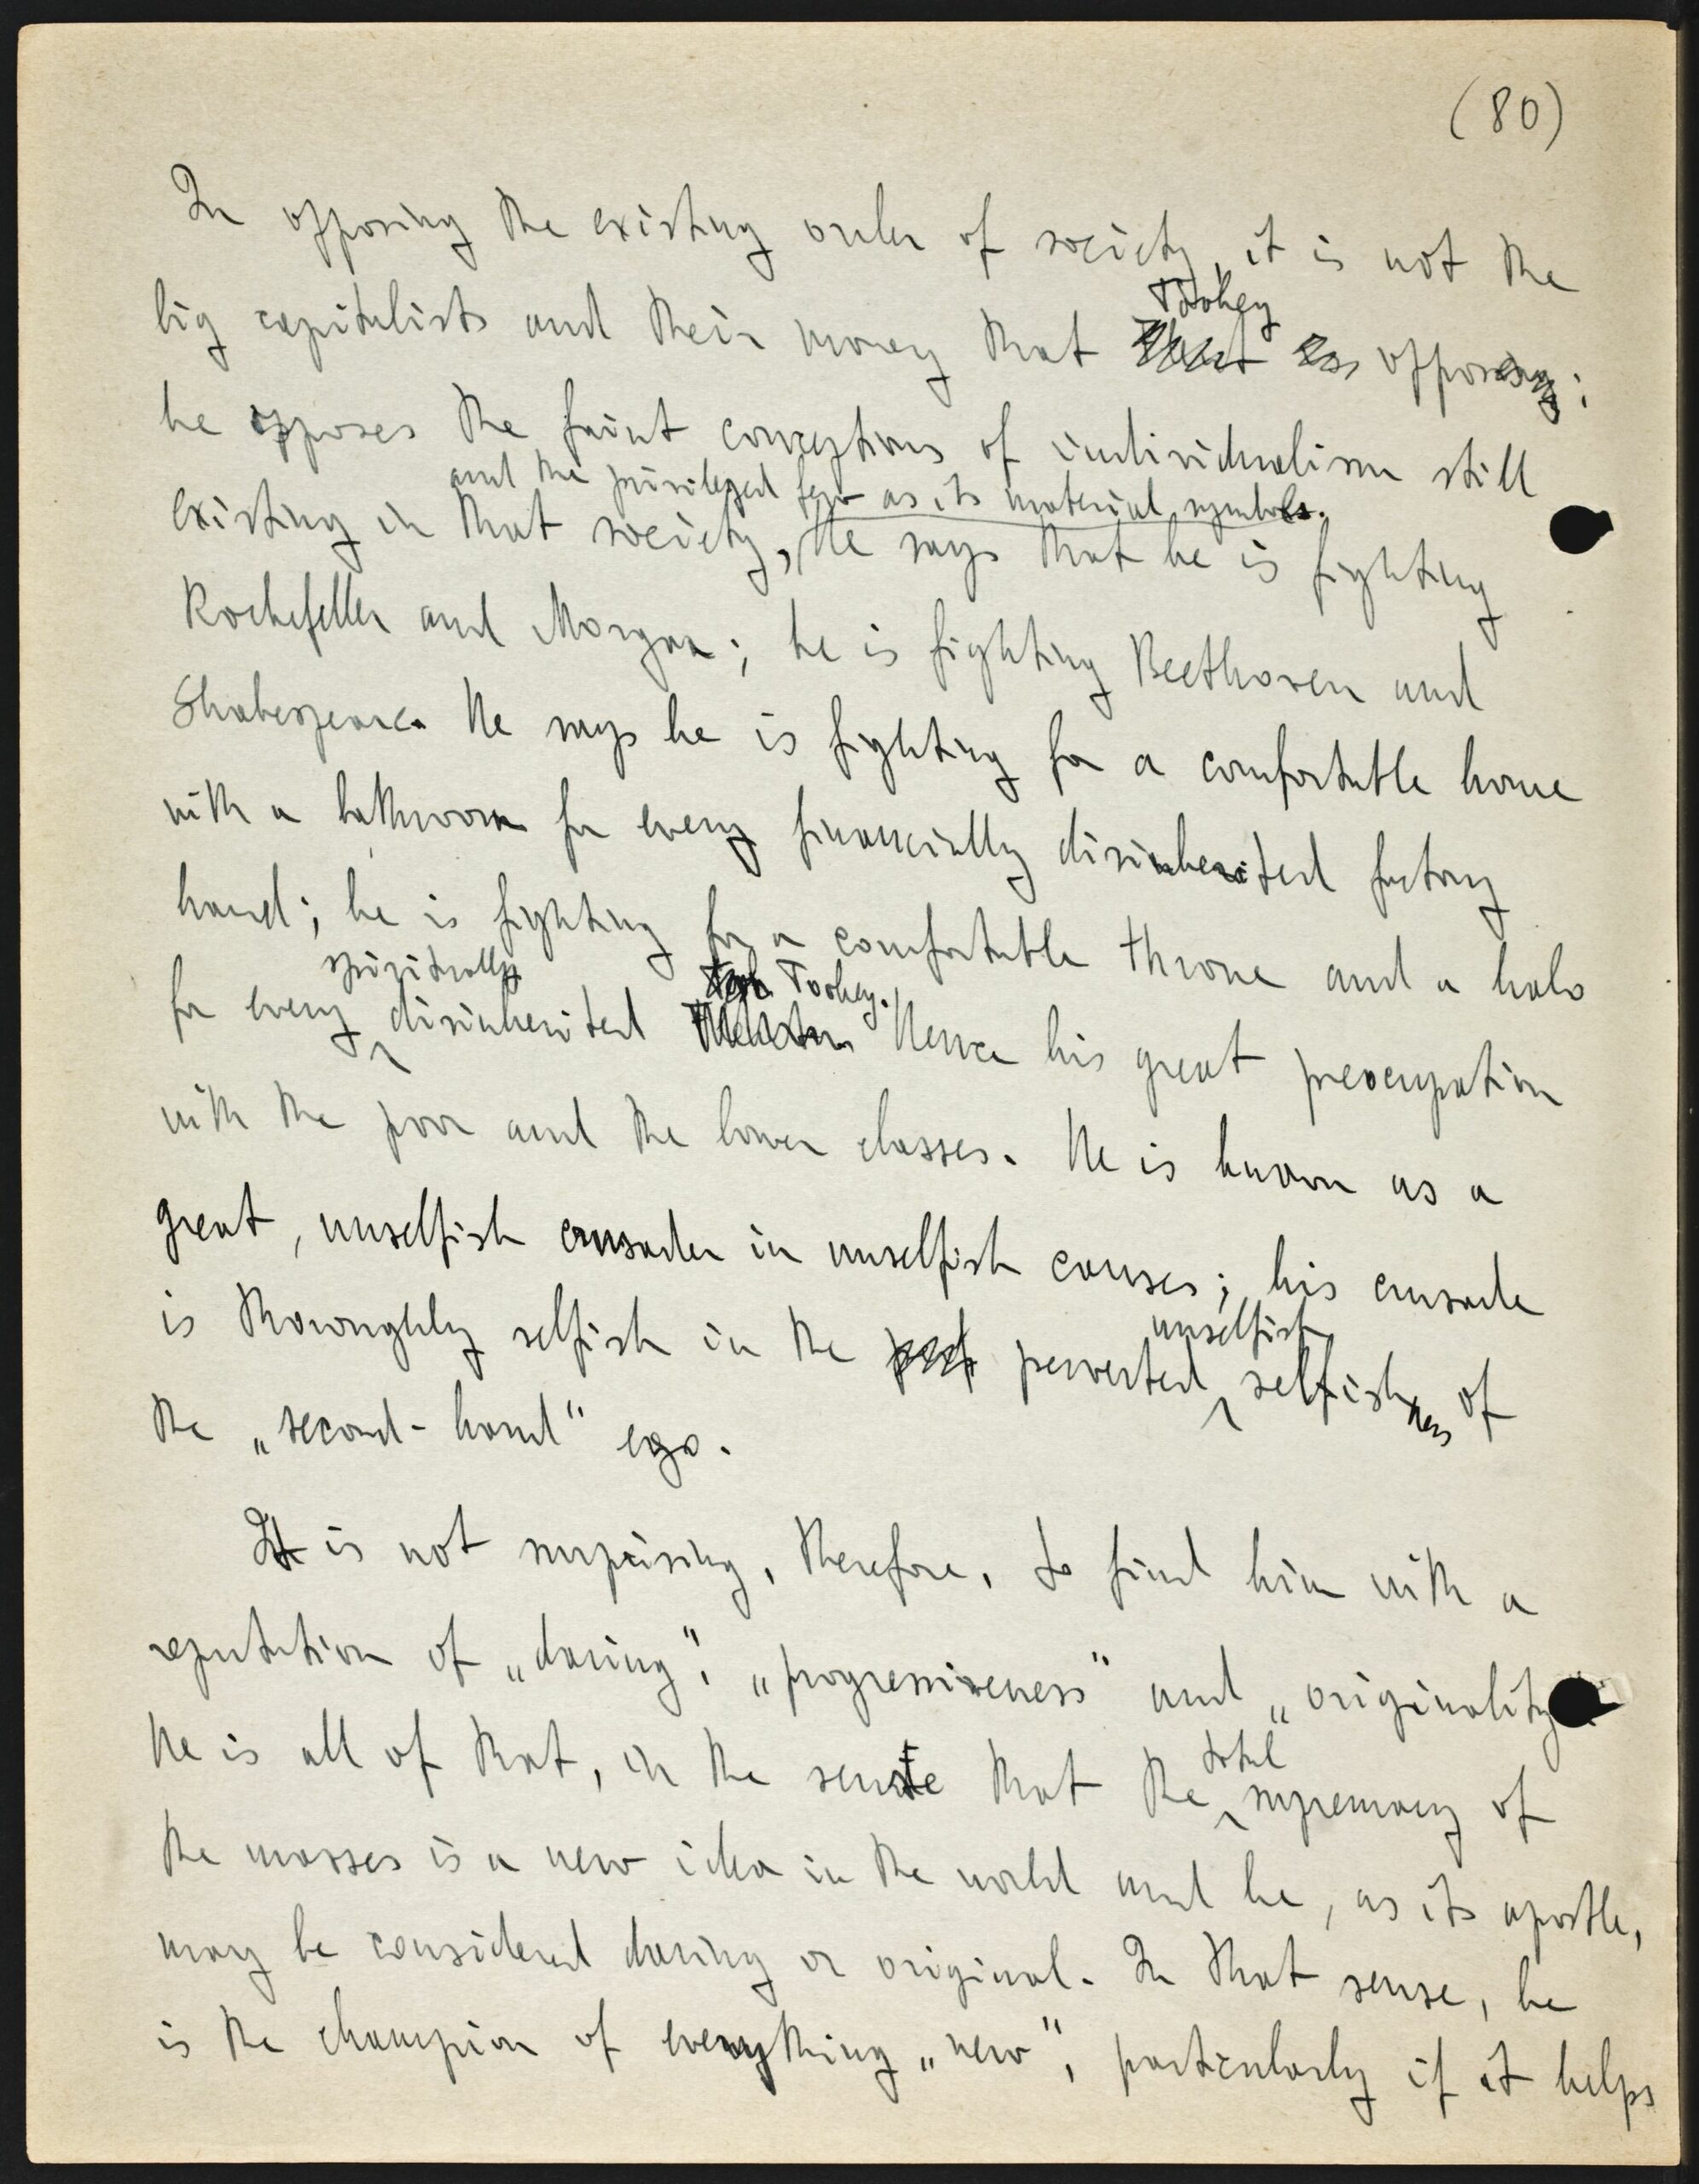 (80)
In opposing the existing order of society, it is not the
big capitalists and their money that Toohey opposes;
he opposes the faint conceptions of individualism still
existing in that society, and the privileged few as its material symbols. He says that he is fighting
Rockefeller and Morgan; he is fighting Beethoven and
Shakespeare. He says he is fighting for a comfortable home
with a bathroom for every financially disinherited factory
hand; he is fighting for a comfortable throne and a halo
for every spiritually disinherited Toohey. Hence his great preocupation
with the poor and the lower classes. He is known as a
great, unselfish crusader in unselfish causes; his crusade
is thoroughly selfish in the perverted unselfish selfishness of
the „second-hand" ego.
It is not surprising, therefore, to find him with a
reputation of „daring", „progressiveness" and „originality
He is all of that, in the sense that the total supremacy of
the masses is a new idea in the world and he, as its apostle,
may be considered daring or original. In that sense, he
is the champion of everything „new", particularly if it helps